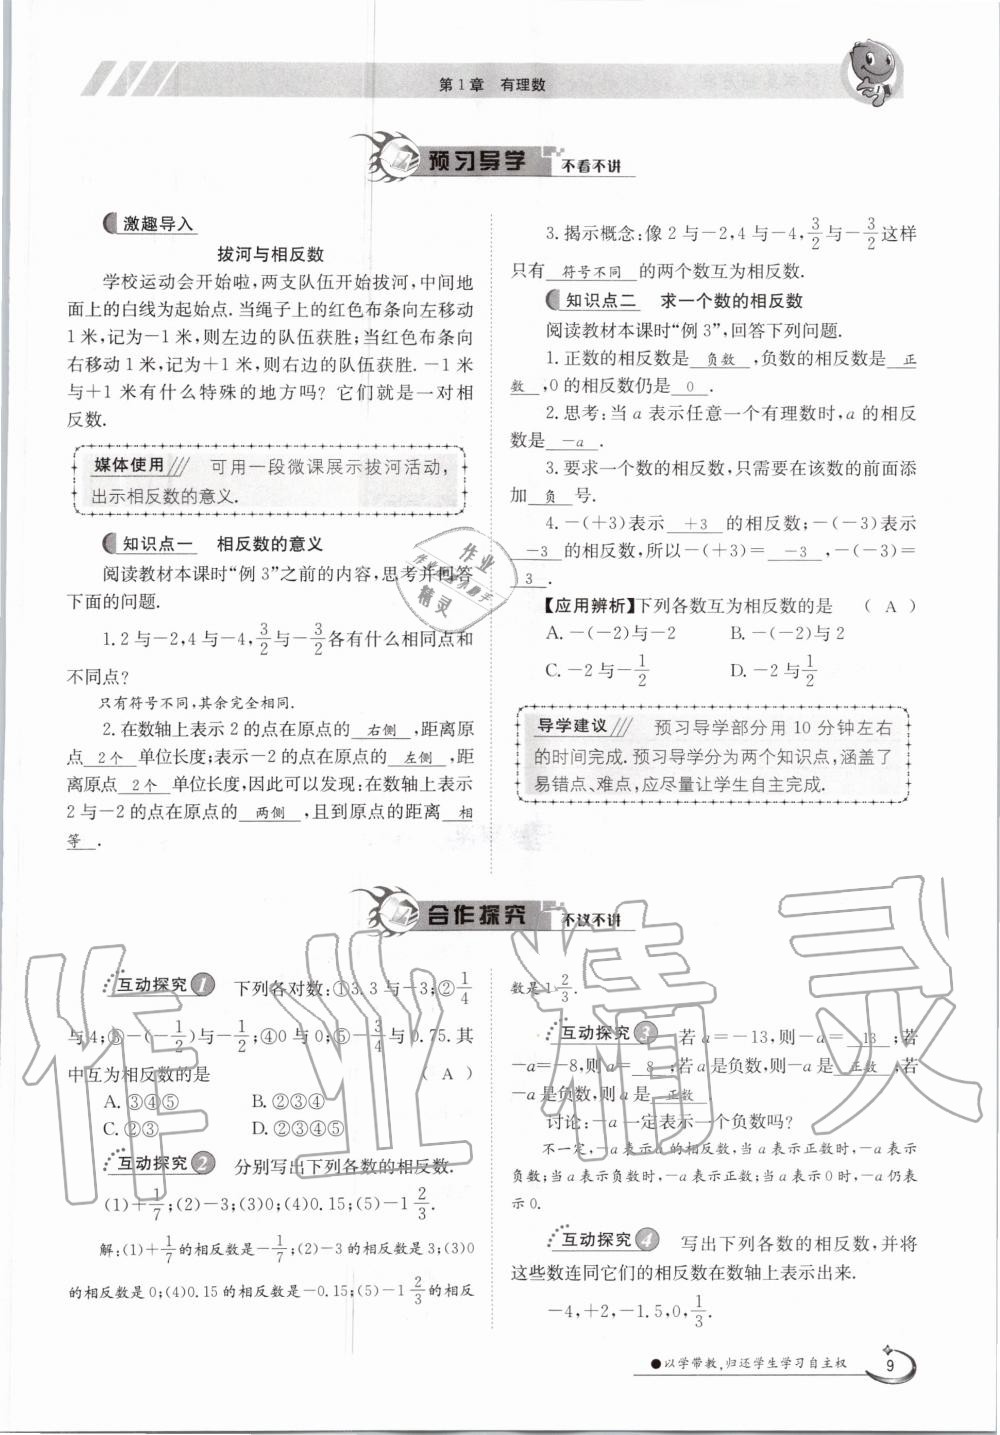 第1章 有理数
预习导学 不看不讲
激趣导入
拔河与相反数
学校运动会开始啦,两支队伍开始拔河,中间地
面上的白线为起始点.当绳子上的红色布条向左移动
1米,记为-1米,则左边的队伍获胜;当红色布条向
右移动1米,记为+1米,则右边的队伍获胜.-1米
与+1米有什么特殊的地方吗?它们就是一对相
反数.
媒体使用 可用一段微课展示拔河活动,
出示相反数的意义.
知识点一 相反数的意义
阅读教材本课时“例3”之前的内容,思考并回答
下面的问题.
1.2与-2,4与-4,3/2与-3/2各有什么相同点和
不同点?
只有符号不同,其余完全相同.
2.在数轴上表示2的点在原点的 右侧 ,距离原
点 2个 单位长度;表示-2的点在原点的 左侧 ,距
离原点 2个 单位长度,因此可以发现:在数轴上表示
2与-2的点在原点的 两侧 ,且到原点的距离 相
等 .
3.揭示概念:像2与-2,4与-4,3/2与-3/2这样
只有 符号不同 的两个数互为相反数.
知识点二 求一个数的相反数
阅读教材本课时“例3”,回答下列问题.
1.正数的相反数是 负数 ,负数的相反数是 正
数 ,0的相反数仍是 0 .
2.思考:当a表示任意一个有理数时,a的相反
数是 -a .
3.要求一个数的相反数,只需要在该数的前面添
加 负 号.
4.-(+3)表示 +3 的相反数;-(-3)表示
-3 的相反数,所以-(+3)= -3 ,-(-3)=
3 .
【应用辨析】下列各数互为相反数的是 ( A )
A.-(-2)与-2 B.-(-2)与2
C.-2与-1/2 D.-2与1/2
导学建议 预习导学部分用10分钟左右
的时间完成.预习导学分为两个知识点,涵盖了
易错点、难点,应尽量让学生自主完成.
合作探究 不议不讲
互动探究1 下列各对数:①3.3与-3;②-1/4
与4;③-(-1/2)与-1/2;④0与0;⑤-3/4与0.75.其
中互为相反数的是 ( A )
A.③④⑤ B.②③④
C.②③ D.②③④⑤
互动探究2 分别写出下列各数的相反数.
(1)+1/7;(2)-3;(3)0;(4)0.15;(5)-1 2/3.
解:(1)+1/7的相反数是-1/7;(2)-3的相反数是3;(3)0
的相反数是0;(4)0.15的相反数是-0.15;(5)-1 2/3的相反
数是1 2/3.
互动探究3 若a=-13,则-a= 13 ;若
-a=-8,则a= 8 ;若a是负数,则-a是 正数 ;若
-a是负数,则a是 正数 .
讨论:-a一定表示一个负数吗?
不一定,-a表示a的相反数,当a表示正数时,-a表示
负数;当a表示负数时,-a表示正数;当a表示0时,-a仍表
示0.
互动探究4 写出下列各数的相反数,并将
这些数连同它们的相反数在数轴上表示出来.
-4,+2,-1.5,0,1/3.
●以学带教,归还学生学习自主权 9
作业精灵
作业
精灵